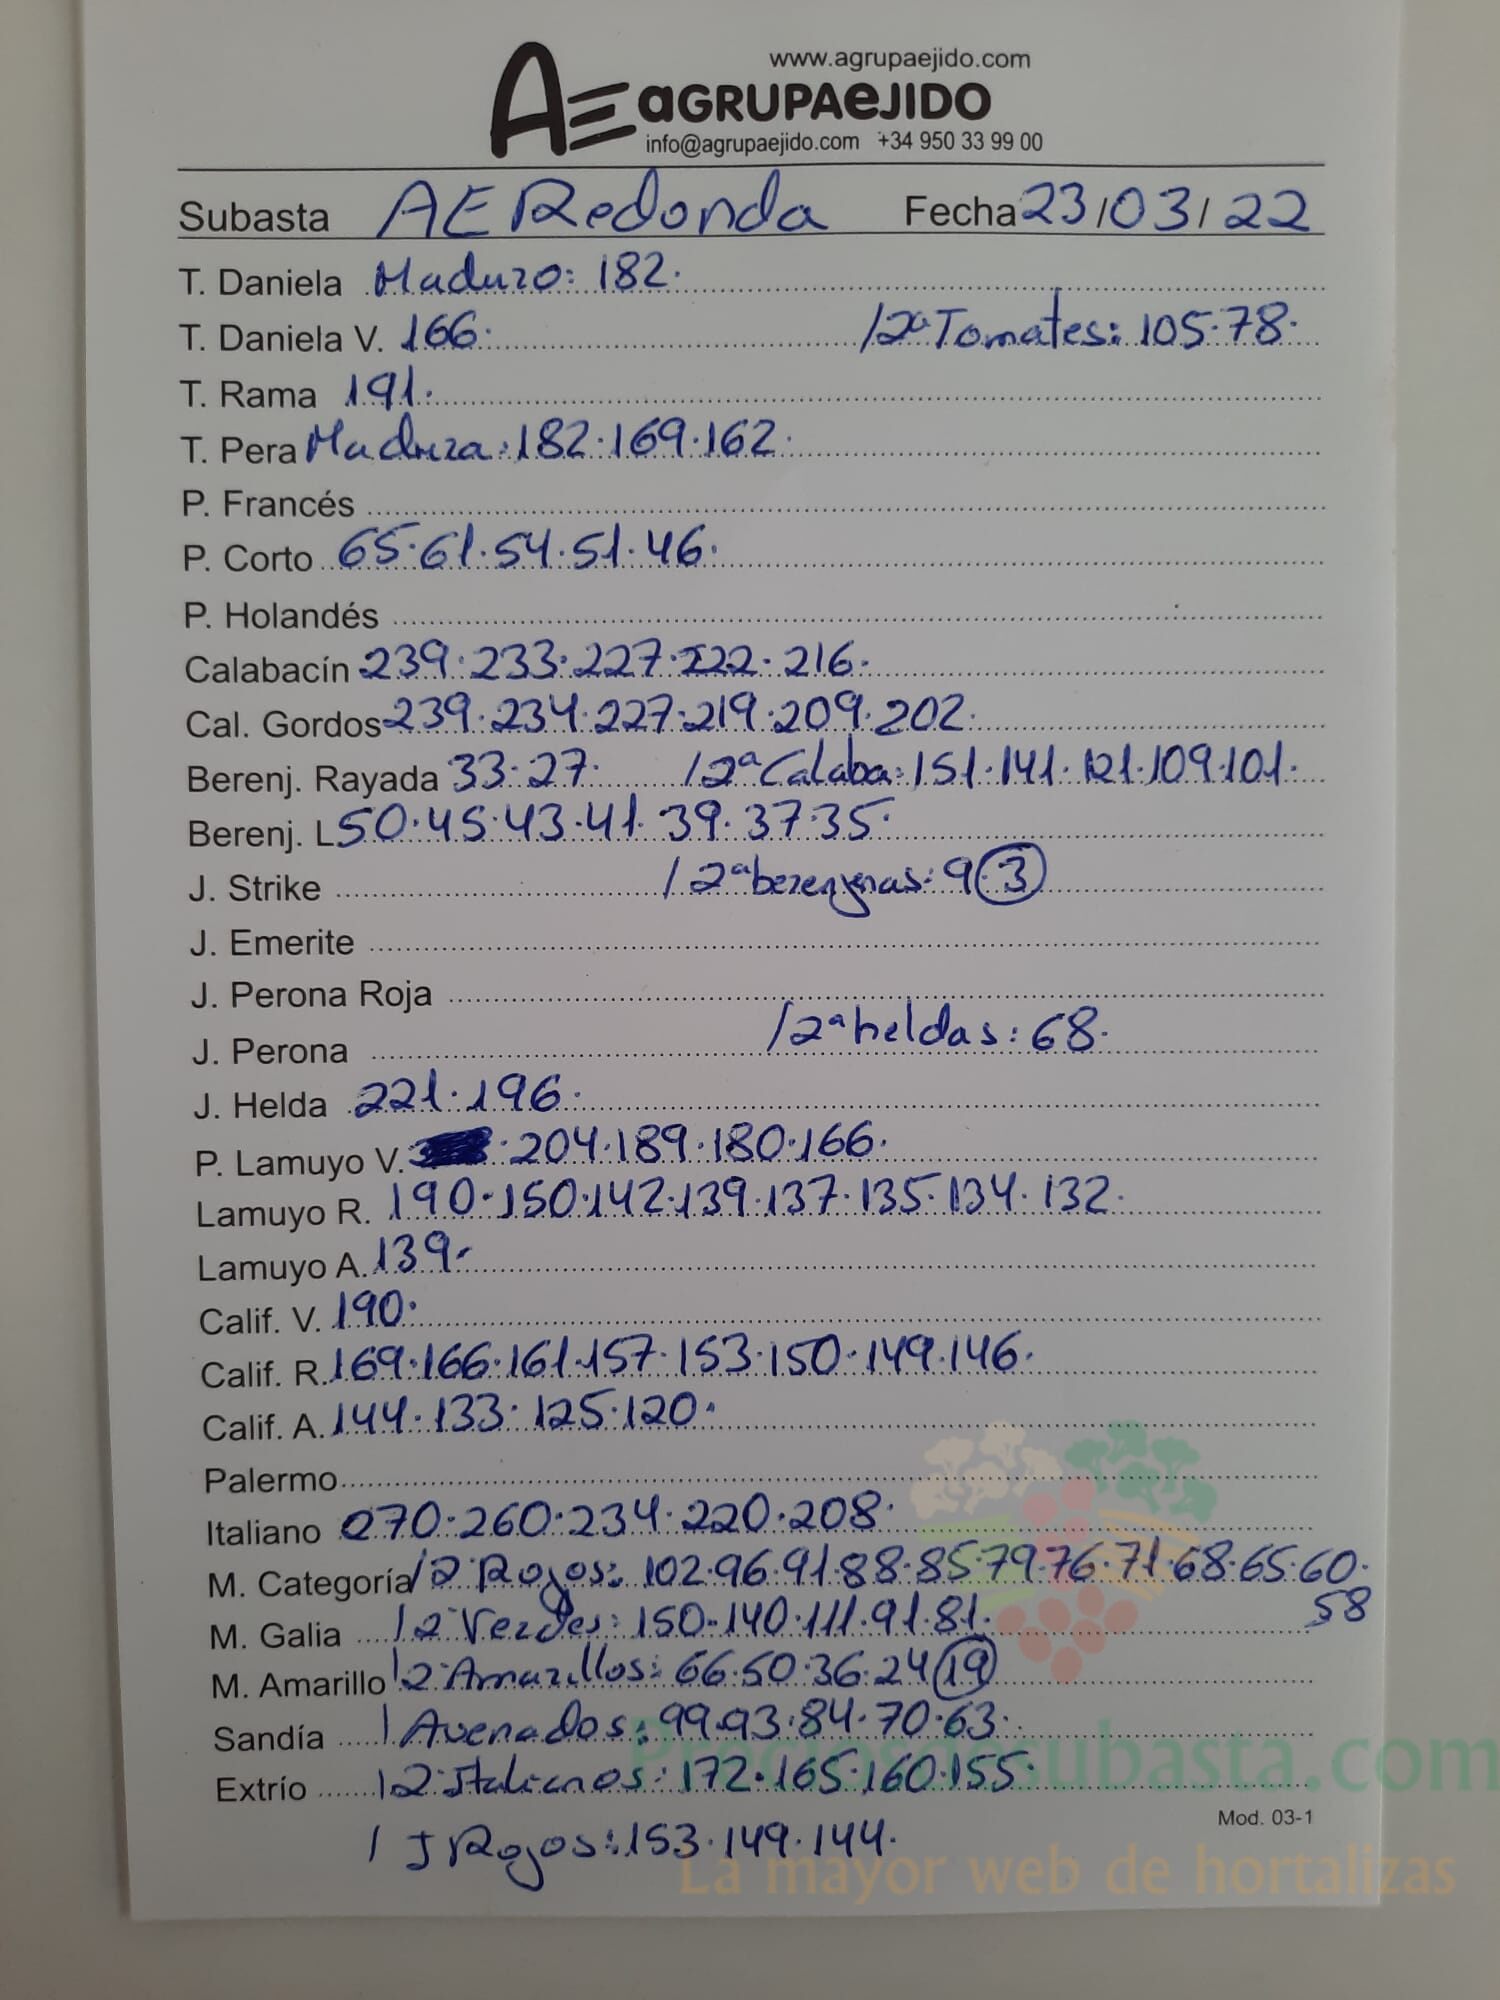 www.agrupaejido.com
AE aGRUPAeJIDO
info@agrupaejido.com +34 950 33 99 00
Subasta AE Redonda Fecha 23/03/22
T. Daniela Maduro: 182.
T. Daniela V. 166. /2ª Tomates: 105.78.
T. Rama 191.
T. Pera Madura: 182.169.162.
P. Francés
P. Corto 65.61.54.51.46.
P. Holandés
Calabacín 239.233.227.222.216.
Cal. Gordos 239.234.227.219.209.202.
Berenj. Rayada 33.27. /2ª Calaba: 151.141.121.109.101.
Berenj. L 50.45.43.41.39.37.35.
J. Strike /2ª berenjenas: 9.3
J. Emerite
J. Perona Roja
J. Perona /2ª heldas: 68.
J. Helda 221.196.
P. Lamuyo V. .204.189.180.166.
Lamuyo R. 190.150.142.139.137.135.134.132.
Lamuyo A. 139.
Calif. V. 190.
Calif. R. 169.166.161.157.153.150.149.146.
Calif. A. 144.133.125.120.
Palermo
Italiano 270.260.234.220.208.
M. Categoría /2ª Rojos: 102.96.91.88.85.79.76.71.68.65.60.
58
M. Galia /2ª Verdes: 150.140.111.91.81.
M. Amarillo /2ª Amarillos: 66.50.36.24 19
Sandía / Asenados: 99.93.84.70.63.
Extrío /2ª Italianos: 172.165.160.155.
/ J Rojos: 153.149.144.
Mod. 03-1
Preciosdesubasta.com
La mayor web de hortalizas